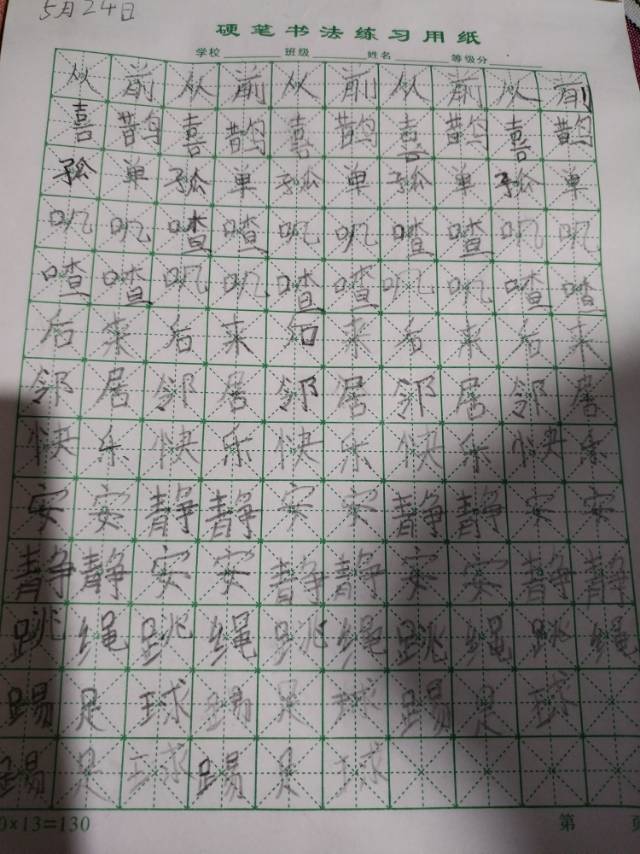 5月24日
硬笔书法练习用纸
学校 班级 姓名 等级分
从前从前从前从前从前
喜鹊喜鹊喜鹊喜鹊喜鹊
孤单孤单孤单孤单孤单
叽叽喳喳叽叽喳喳叽叽
喳喳叽叽喳喳叽叽喳喳
后来后来后来后来后来
邻居邻居邻居邻居邻居
快乐快乐快乐快乐快乐
安安静静安安静静安安
静静安安静静安安静静
跳绳跳绳跳绳跳绳跳绳
踢足球踢足球踢足球
踢足球踢足球
0×13=130 第